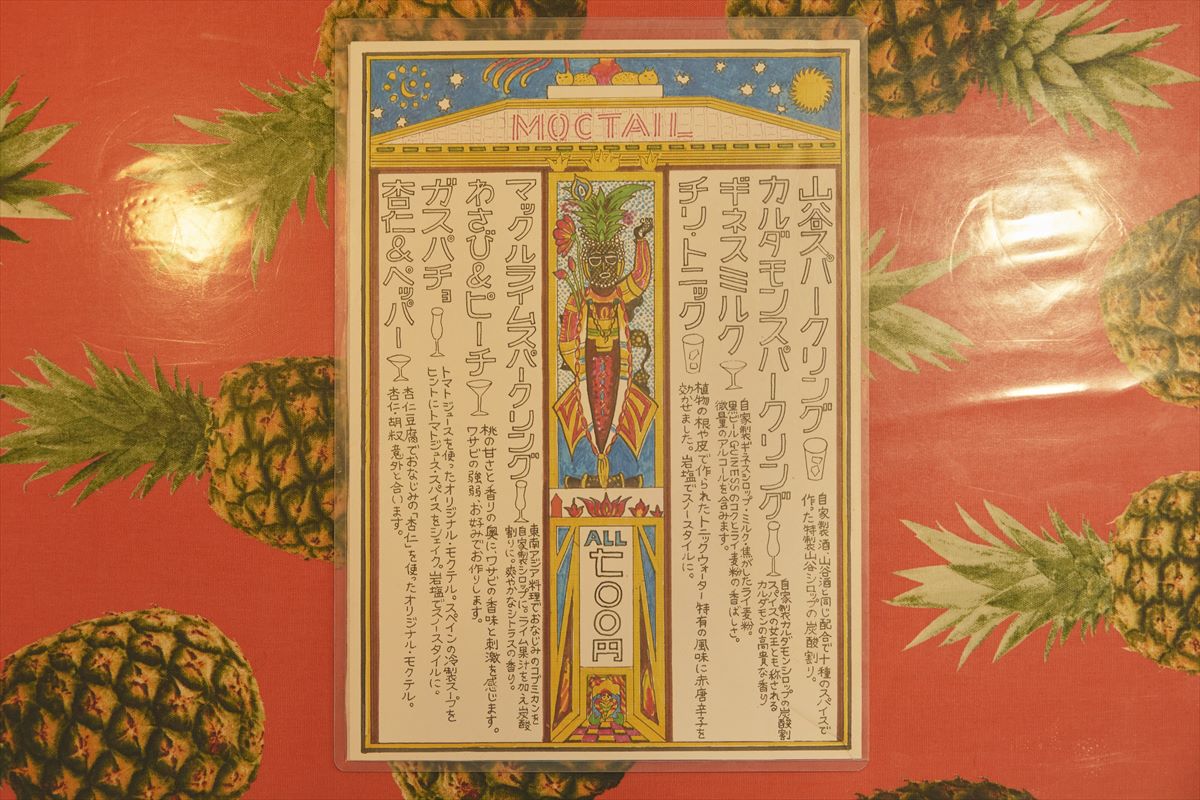 MOCTAIL
山谷スパークリング
自家製酒・山谷酒と同じ配合で十種のスパイスで
作った特製山谷シロップの炭酸割り。
カルダモンスパークリング
自家製カルダモンシロップの炭酸割
スパイスの女王とも称される
カルダモンの高貴な香り
ギネスミルク
自家製ギネスシロップ・ミルク・焦がしたライ麦粉。
黒ビールGUINESSのコクとライ麦粉の香ばしさ。
微量のアルコールを含みます。
チリ・トニック
植物の根や皮で作られたトニックウォーター特有の風味に赤唐辛子を
効かせました。岩塩でスノースタイルに。
ALL
七〇〇円
マックルライムスパークリング
東南アジア料理でおなじみのコブミカンを
自家製シロップに。ライム果汁を加え炭酸
割りに。爽やかなシトラスの香り。
わさび&ピーチ
桃の甘さと香りの奥に、ワサビの香味と刺激を感じます。
ワサビの強弱、お好みでお作りします。
ガスパチョ
トマトジュースを使ったオリジナル・モクテル。スペインの冷製スープを
ヒントにトマトジュース・スパイスをシェイク。岩塩でスノースタイルに。
杏仁&ペッパー
杏仁豆腐でおなじみの「杏仁」を使ったオリジナル・モクテル。
杏仁・胡椒 意外と合います。